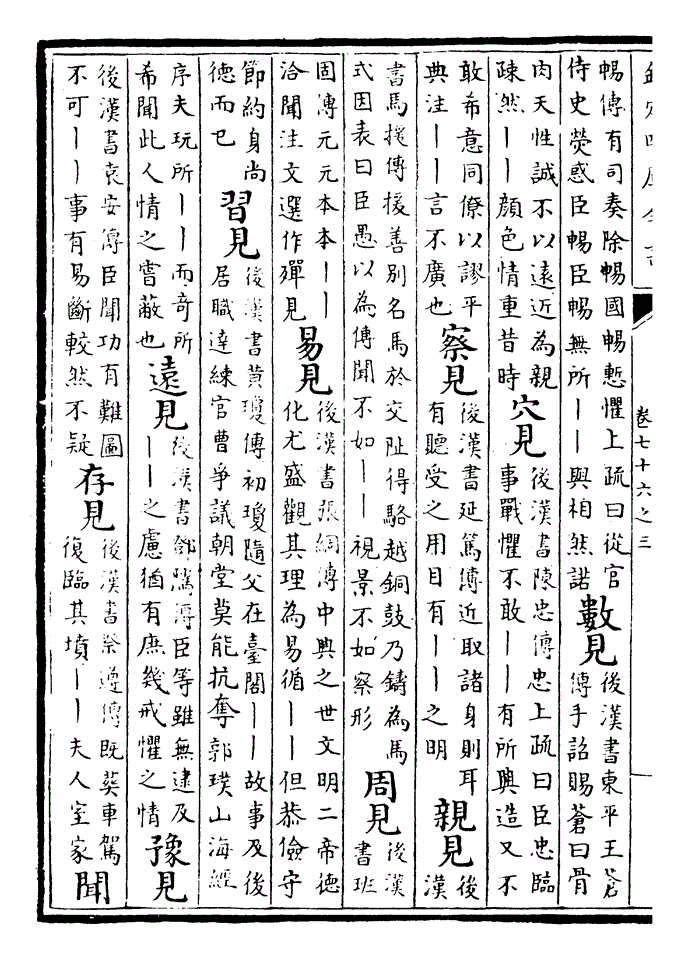 欽定四庫全書
卷七十六之三
暢傳有司奏除暢國暢慙懼上疏曰從官
侍史熒惑臣暢臣暢無所丨丨與相然諾
數見
後漢書東平王蒼
傳手詔賜蒼曰骨
肉天性誠不以遠近為親
疎然丨丨顔色情重昔時
穴見
後漢書陳忠傳忠上疏曰臣忠臨
事戰懼不敢丨丨有所興造又不
敢希意同僚以謬平
典注丨丨言不廣也
察見
後漢書延篤傳近取諸身則耳
有聽受之用目有丨丨之明
親見
後
漢
書馬援傳援善别名馬於交阯得駱越銅鼓乃鑄為馬
式因表曰臣愚以為傳聞不如丨丨視景不如察形
周見
後漢
書班
固傳元元本本丨丨
洽聞注文選作殫見
易見
後漢書張綱傳中興之世文明二帝德
化尤盛觀其理為易循丨丨但恭儉守
節約身尚
德而已
習見
後漢書黄瓊傳初瓊隨父在臺閣丨丨故事及後
居職達練官曹爭議朝堂莫能抗奪郭璞山海經
序夫玩所丨丨而奇所
希聞此人情之嘗蔽也
遠見
後漢書鄧隲傳臣等雖無逮及
丨丨之慮猶有庶幾戒懼之情
豫見
後漢書袁安傳臣聞功有難圖
不可丨丨事有易斷較然不疑
存見
後漢書祭遵傳既葬車駕
復臨其墳丨丨夫人室家
聞